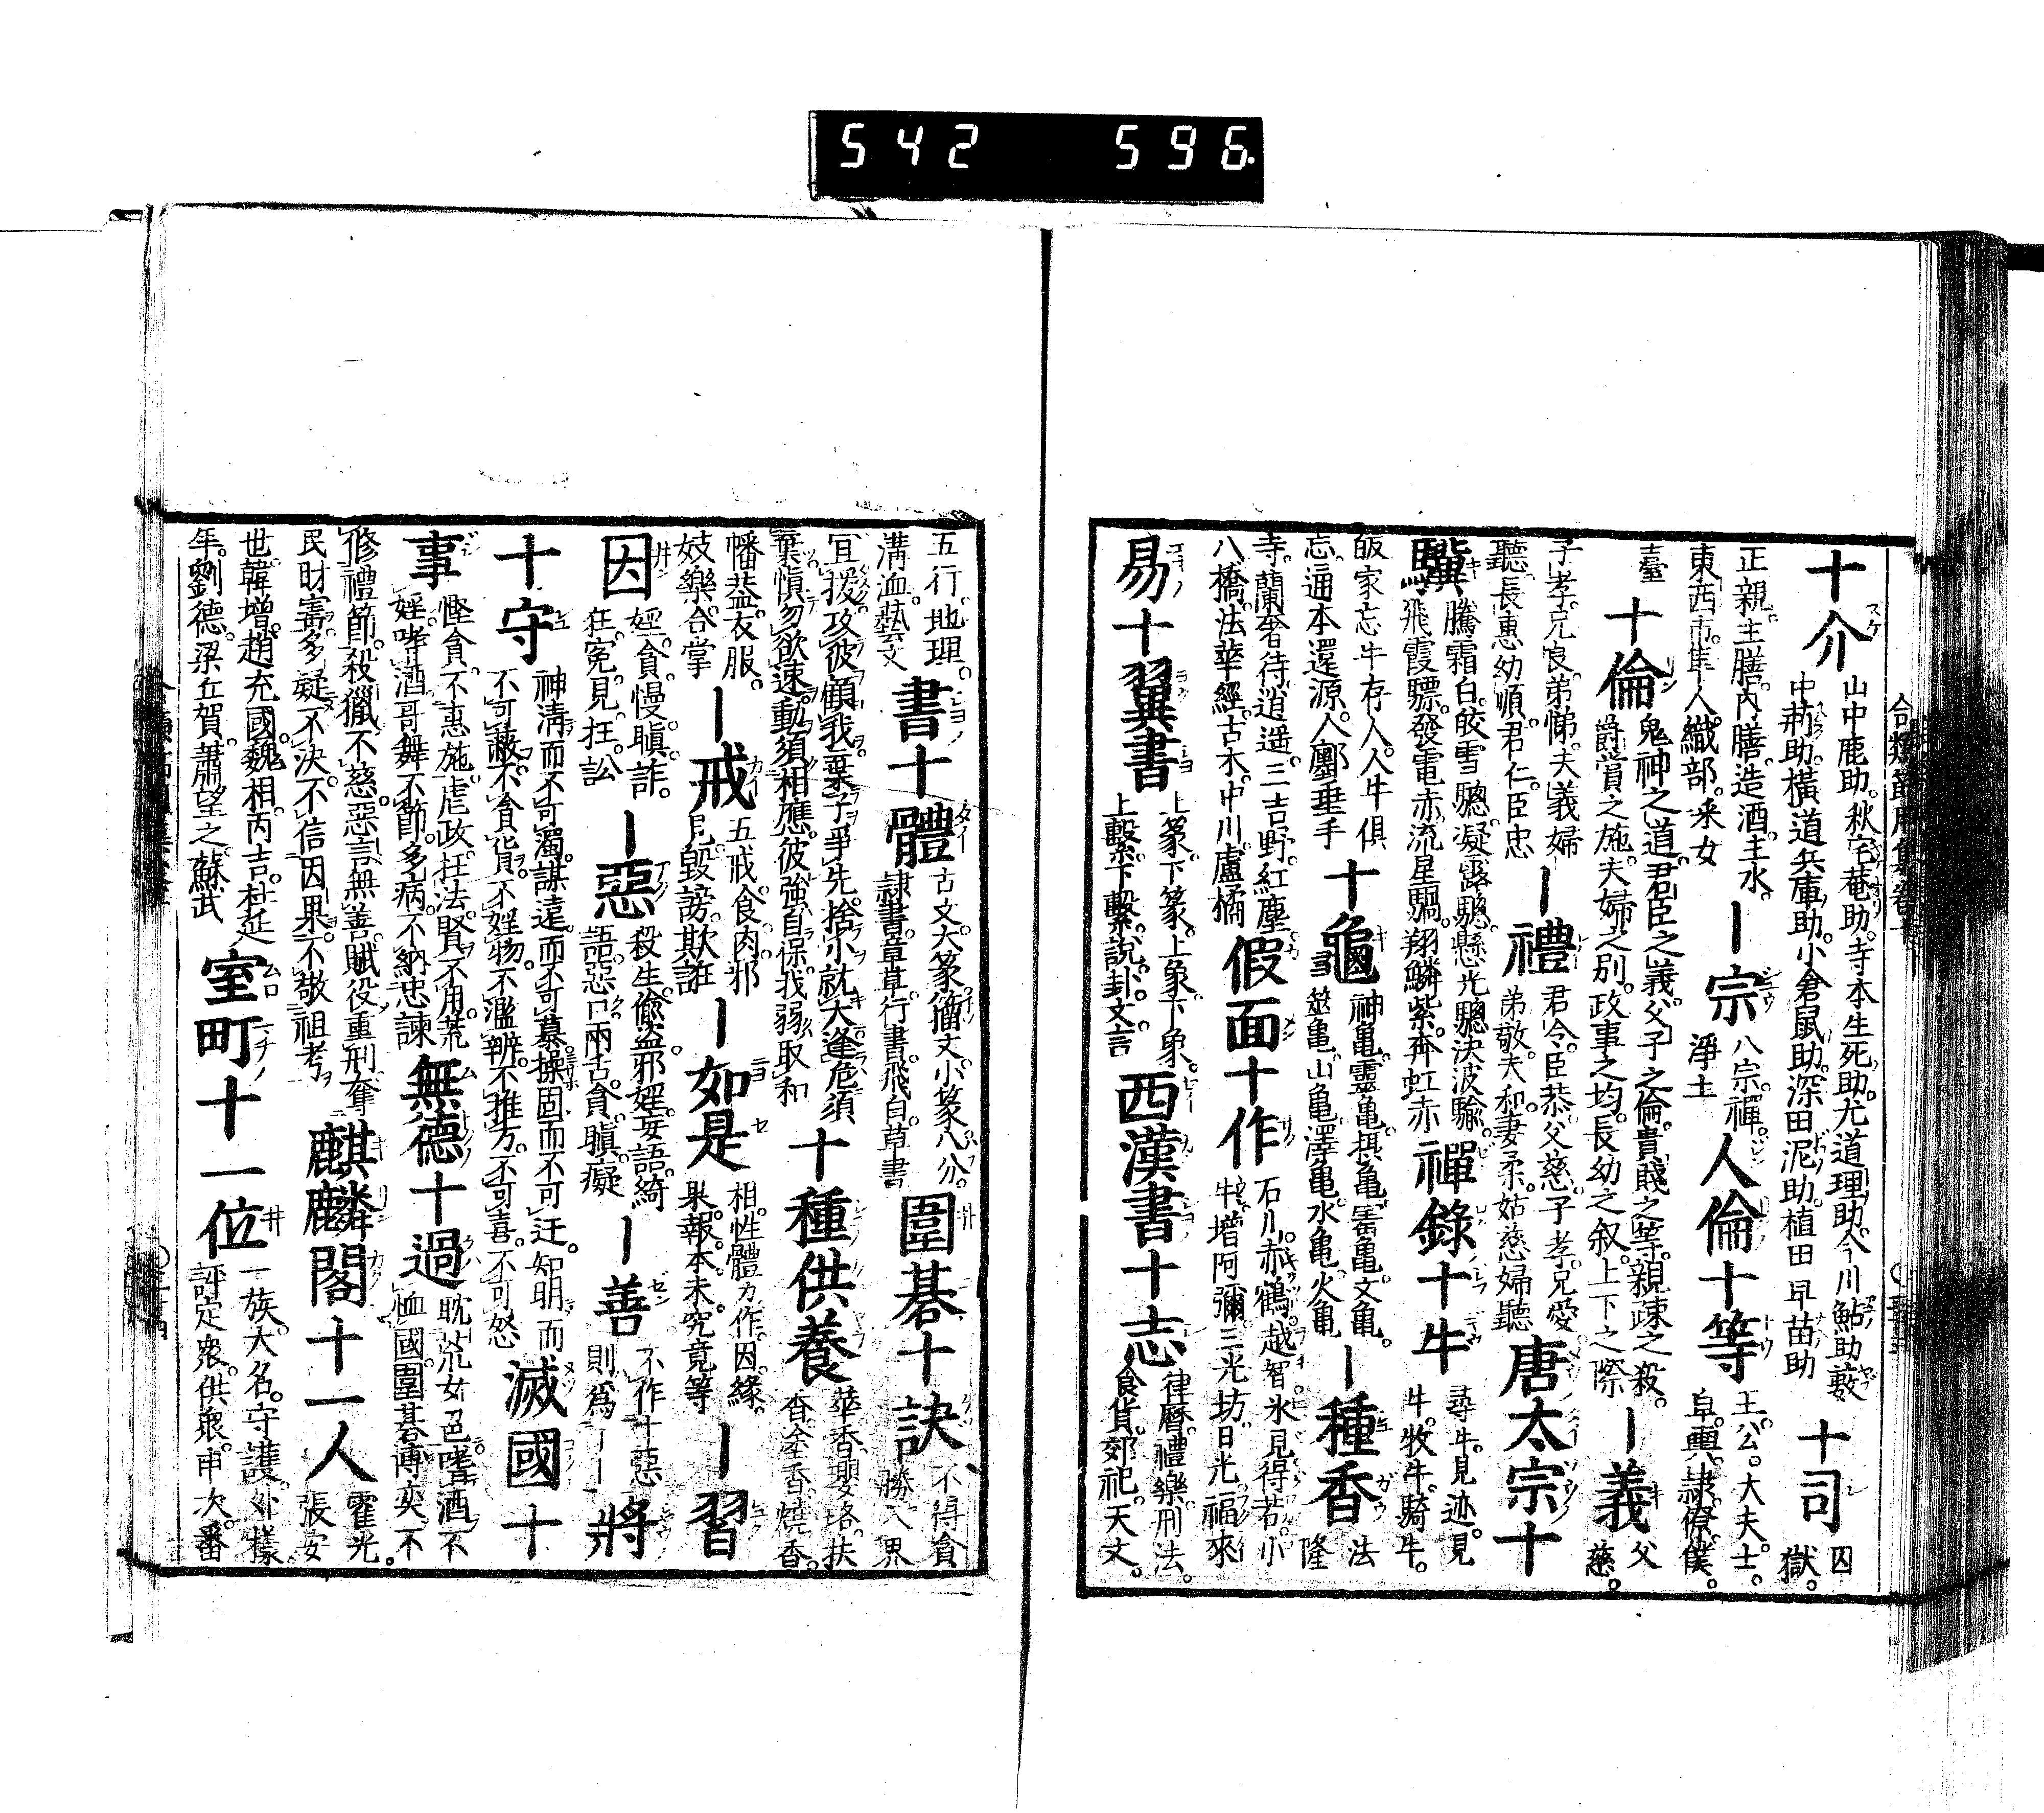 542 596
合類節用集卷十
十介 山中鹿助。秋宅菴助。寺本生死助。尤道理助。今川鮎助。藪
中荊助。橫道兵庫助。小倉鼠助。深田泥助。植田早苗助
十司 囚獄。
正親。主膳。內膳。造酒。主水。
東西市。隼人。織部。采女
｜宗 八宗。禪。
淨土
人倫十等 王。公。大夫。士。
皁。輿。隷。僚。僕。
臺
十倫 鬼神之道。君臣之義。父子之倫。貴賤之等。親疎之殺。
爵賞之施。夫婦之別。政事之均。長幼之叙。上下之際
｜義 父慈。
子孝。兄良。弟悌。夫義婦
聽。長惠幼順。君仁。臣忠
｜禮 君令。臣恭。父慈。子孝。兄愛。
弟敬。夫和。妻柔。姑慈。婦聽
唐太宗十
驥 騰霜白。皎雪驄。凝露驄。懸光驄。決波騟。
飛霞驃。發電赤。流星騧。翔麟紫。奔虹赤
禪錄十牛 尋牛。見迹。見
牛。牧牛。騎牛。
皈家忘牛存人。人牛俱
忘。逼本還源。入鄽垂手
十龜 神亀。靈亀。摂亀。宝亀。文亀。
筮亀。山亀。澤亀。水亀。火亀
｜種香 法隆
寺。蘭奢待。逍遥。三吉野。紅塵。
八橋。法華經。古木。中川。盧橘
假面十作 石川。赤鶴。越智。氷見。得若。小
牛。増阿彌。三光坊。日光。福來
易十翼書 上篆。下篆。上象。下象。
上繫。下繫。說卦。文言
西漢書十志 律曆。禮樂。刑法。
食貨。郊祀。天文。
五行。地理。
溝洫。藝文
書十體 古文。大篆。籀文。小篆。八分。
隷書。章草。行書。飛白。草書
圍碁十訣 不得貪勝。入界
宜援。攻彼顧我。棄子爭先。捨小就大。逢危須
棄。愼勿欲速。動須相應。彼強自保。我弱取和
十種供養 華。香。瓔珞。抹
香。塗香。燒香。
幡蓋。衣服。
妓樂。合掌
｜戒 五戒。食肉。邪
見。毀謗。欺誑
｜如是 相。性。體。力。作。因。緣。
果。報。本末究竟等
｜習
因 婬。貪。慢。瞋。詐。
狂。寃。見。枉。訟
｜惡 殺生。偸盗。邪婬。妄語。綺
語。惡口。兩舌。貪。瞋。癡
｜善 不作十惡
則爲｜｜
將
十守 神淸而不可濁。謀遠而不可慕。操固而不可迂。知明而
不可蔽。不貪貨。不婬物。不濫辨。不推方。不可喜。不可怒
滅國十
事 慳貪。不惠施。虐政。枉法。賢不用。荒
婬。嗜酒哥舞。不節。多病。不納忠諫
無德十過 耽荒女色。嗜酒不
恤國。圍碁博奕。不
修禮節。殺獵不慈。惡言無善。賦役重刑。奪
民財寳。多疑不決。不信因果。不敬祖考
麒麟閣十一人 霍光。
張安
世。韓增。趙充國。魏相。丙吉。杜延
年。劉德。梁丘賀。蕭望之。蘇武
室町十一位 一族大名。守護。外樣。
評定衆。供衆。申次。番